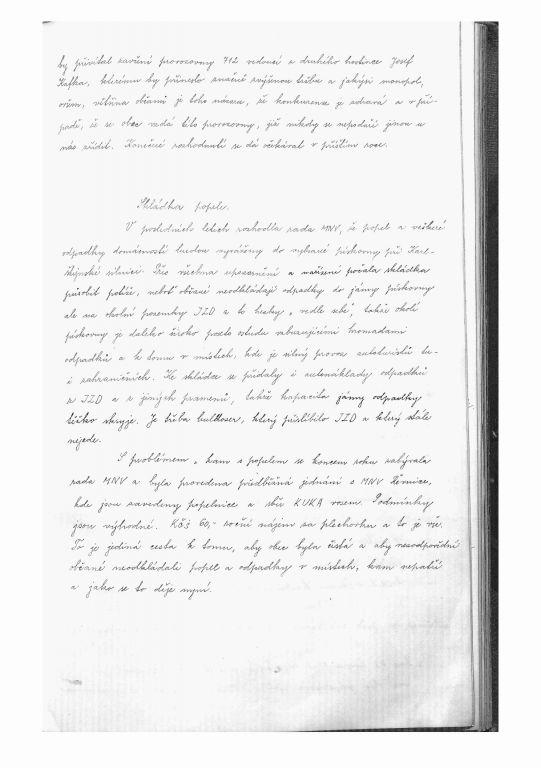 by přivítal zavření provozovny 712 vedoucí z druhého hostince Josef
Kafka, kterému by přineslo značně zvýšenou tržbu a jakýsi monopol,
ovšem, většina občanů je toho názoru, že konkurence je zdravá a v pří-
padě, že se obec vzdá této provozovny, již nikdy se nepodaří jinou u
nás zřídit. Konečné rozhodnutí se dá očekávat v příštím roce.
Skládka popele.
V posledních letech rozhodla rada MNV, že popel a veškeré
odpadky domácností budou vyváženy do vybrané pískovny při Karl-
štejnské silnici. Přes všechna upozornění a nařízení počala skládka
působit potíže, neboť občané neodkládají odpadky do jámy pískovny
ale na okolní pozemky JZD a to hezky „vedle sebe", takže okolí
pískovny je daleko široko pravdu ostudu vzbuzujícími hromadami
odpadků a k tomu v místech, kde je silný provoz autoturistů tu-
i zahraničních. Ke skládce se přidaly i autonáklady odpadků
z JZD a z jiných pramenů, takže kapacita jámy odpadky
těžko skryje. Je třeba buldozer, který přislíbilo JZD a který stále
nejede.
S problémem „kam s popelem se koncem roku zabývala
rada MNV a byla provedena předběžná jednání s MNV Žernice,
kde jsou zavedeny popelnice a sběr KUKA vozem. Podmínky
jsou výhodné. Kčs 60,- roční nájem za plechovku a to je vše.
To je jediná cesta k tomu, aby obec byla čistá a aby nezodpovědní
občané neodkládali popel a odpadky v místech, kam nepatří
a jako se to děje nyní.